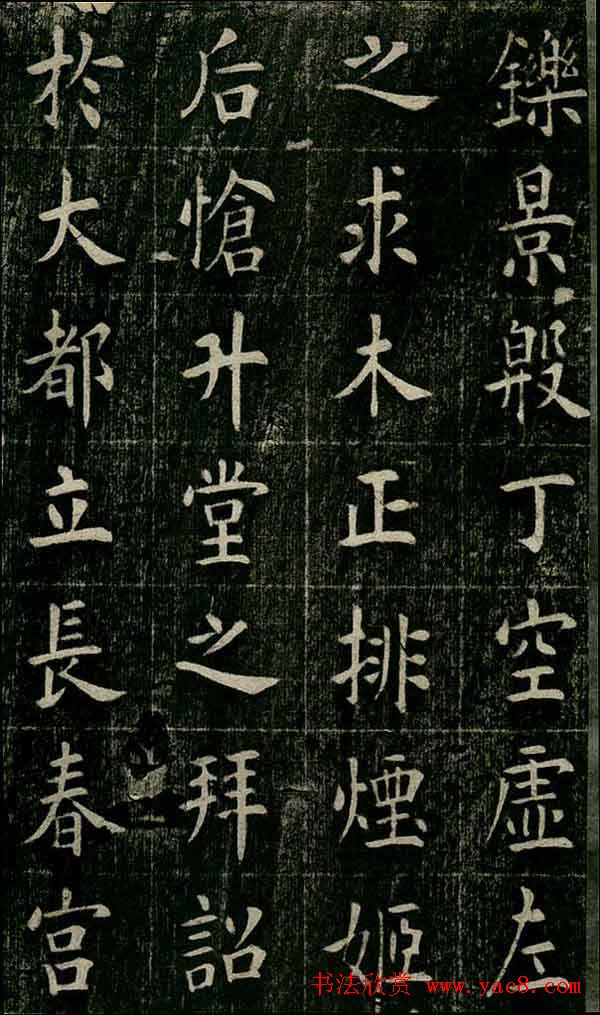 鑠景殷丁空虛左
之求木正排煙姬
后愴升堂之拜詔
於大都立長春宮
书法欣赏 www.yac8.com